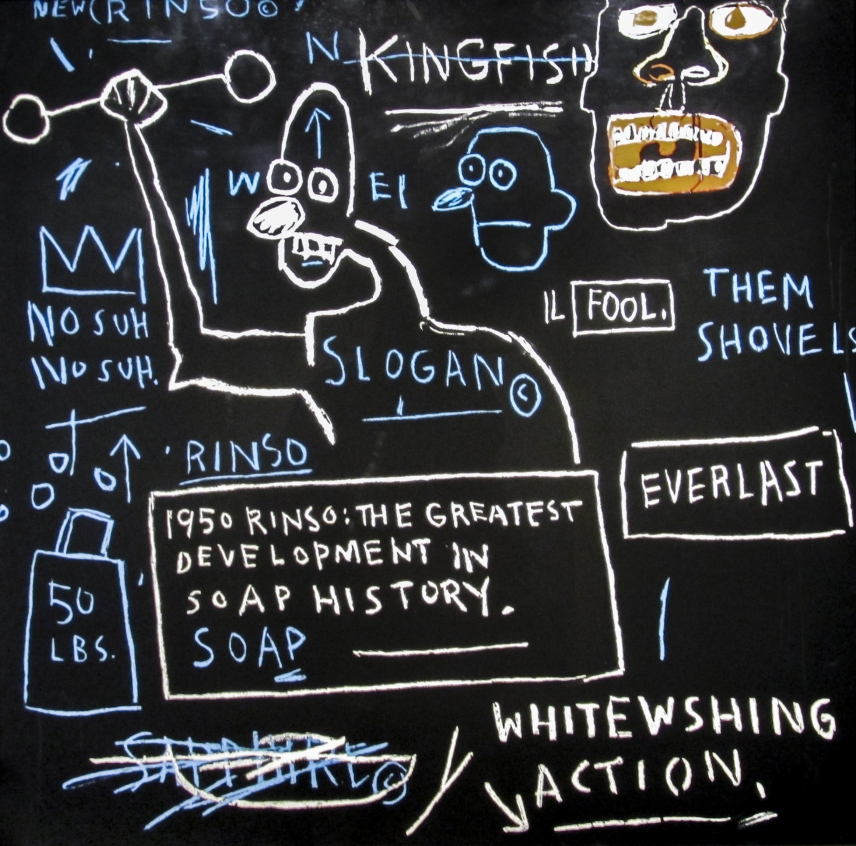 NEW (RINSO©
N KINGFISH
W EI
NO SUH
NO SUH.
IL FOOL.
THEM
SHOVELS
SLOGAN ©
RINSO
EVERLAST
1950 RINSO: THE GREATEST
DEVELOPMENT IN
SOAP HISTORY.
SOAP
50
LBS.
WHITEWSHING
ACTION.
©